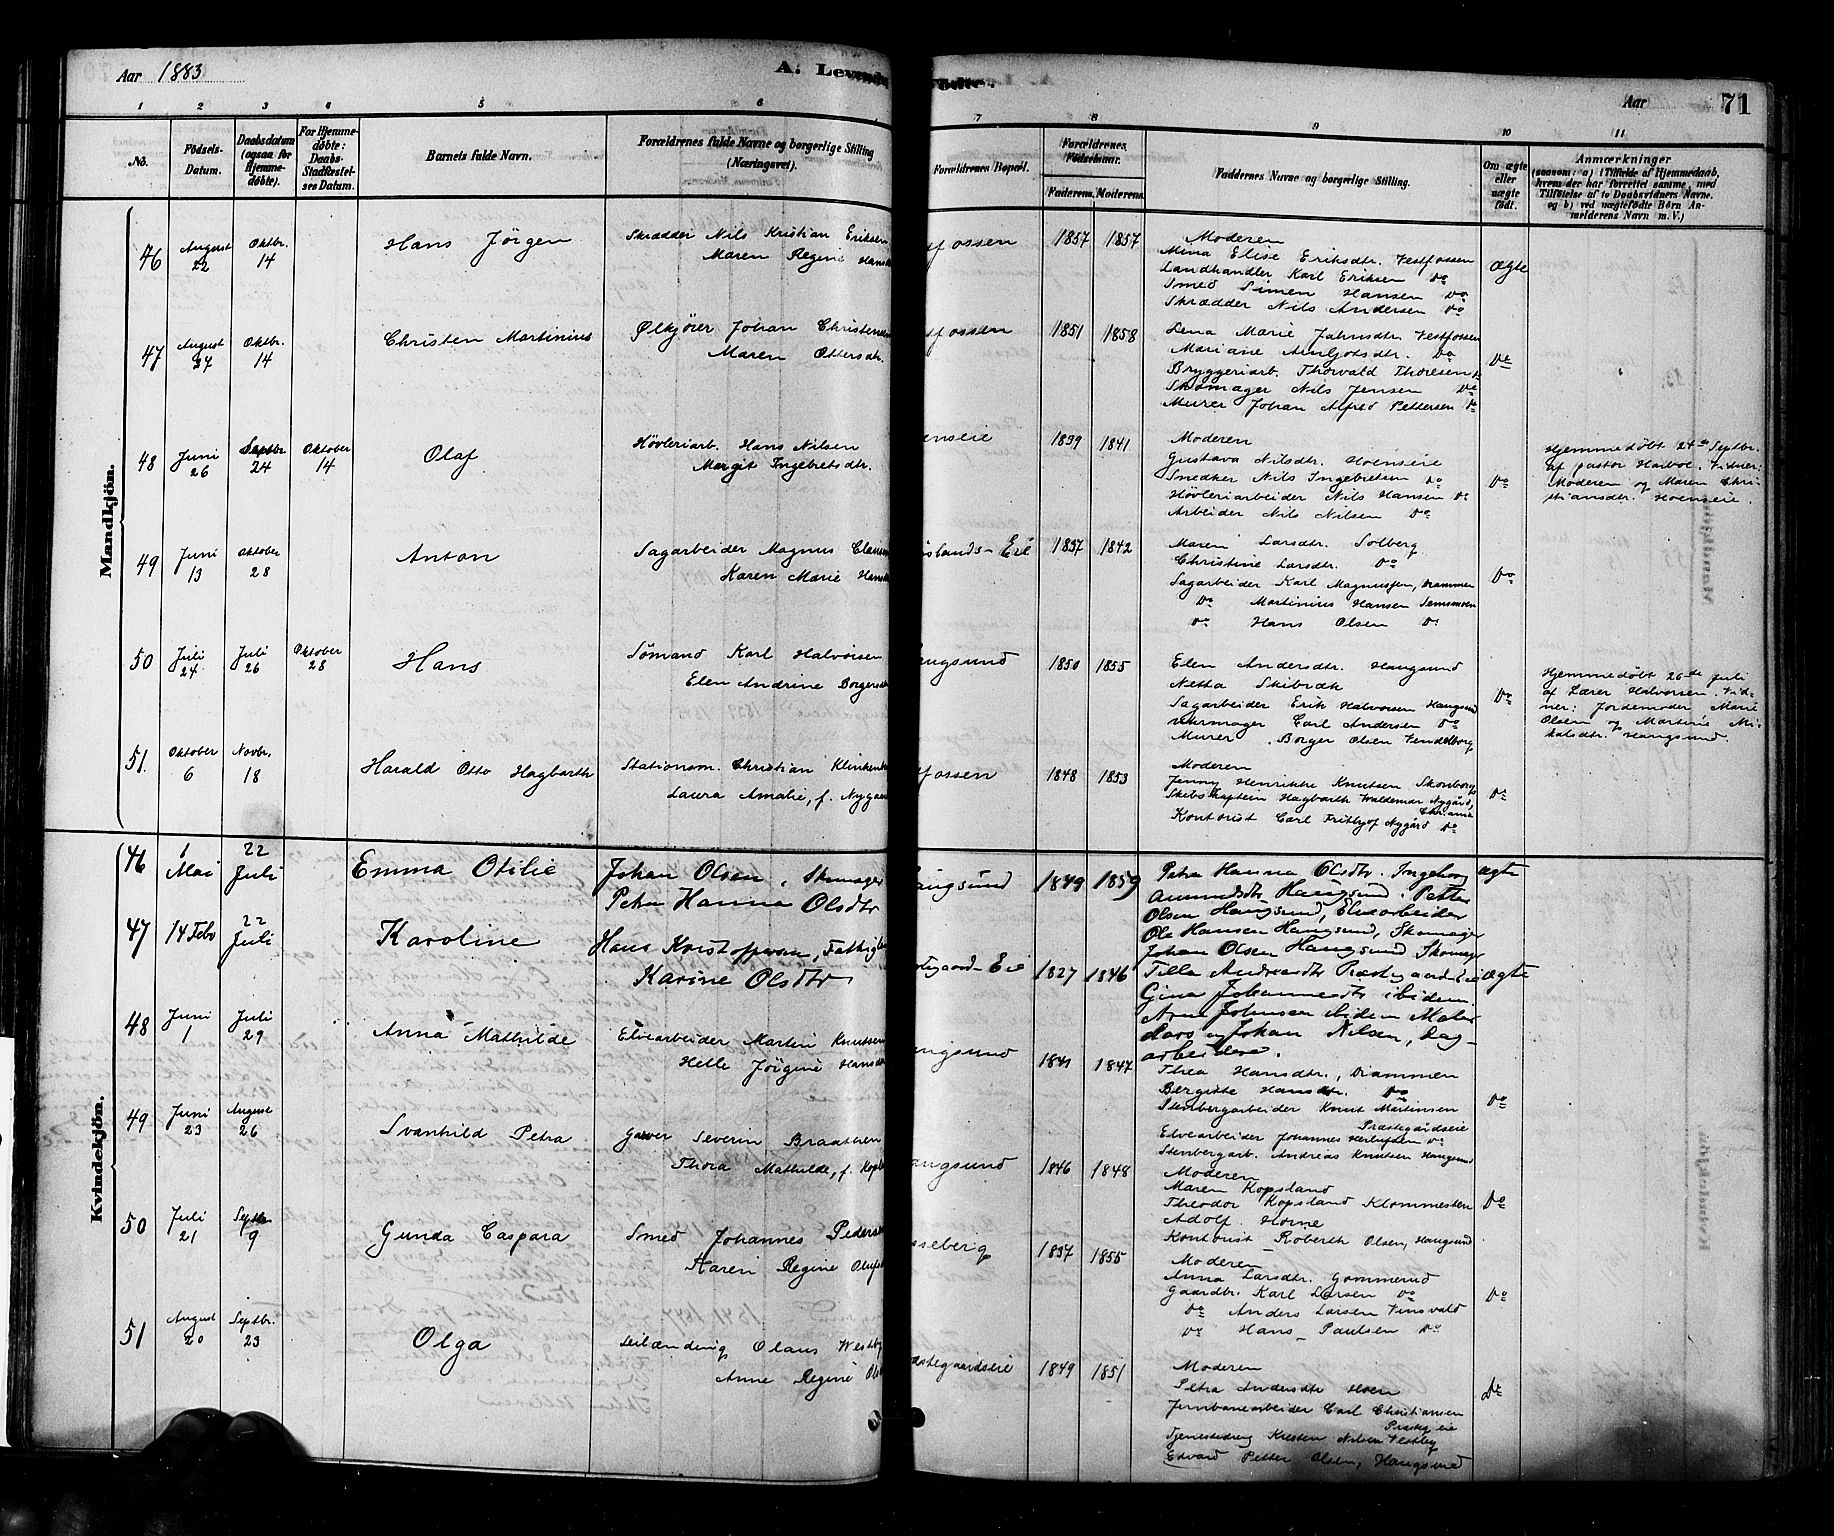 Aar 1883
A. Levende
1 2 3 4 5 6
No. Fødsels-Datum. Daabsdatum (ogsaa for Hjemmedøbte). For Hjemmedøbte: Daabs-Stadfæstelses Datum. Barnets fulde Navn. Forældrenes fulde Navne og borgerlige Stilling (Næringsvei).
Mandkjön.
46 August 22 Oktbr. 14 Hans Jörgen Skrædder Nils Kristian Eriksen
Maren Regine
47 August 27 Oktbr. 14 Christen Martinius Ølkjører Johan
Maren Ottersdtr.
48 Juni 26 Septbr 24 Oktober 14 Olaf Høvleriarb. Hans Nilsen
Margit Ingebretsdtr.
49 Juni 13 Oktober 28 Anton Sagarbeider Magnus
Karen Marie
50 Juli 24 Juli 26 Oktober 28 Hans Sömand Karl Halvorsen
Elen Andrine
51. Oktober 6 Novbr. 18 Harald Otto Hagbarth Stationsm. Christian
Laura Amalie, f.
Kvindekjön.
46 1 Mai 22 Juli Emma Otilie Johan Olsen, Skomager
Petra Hanna Olsdtr
47 14 Feb 22 Juli Karoline Hans Kristoffersen,
Karine Olsdtr
48 Juni 1 Juli 29 Anna Mathilde Elvearbeider Martin Knutsen
Helle Jörgine
49 Juni 23 August 26 Svanhild Petra Garver Severin Braathen
Thora Mathilde, f.
50 Juli 21 Septbr 9 Gunda Caspara Smed Johannes
Karen Regine
51 August 20 Septbr. 23 Olga Olaus
Anne Regine
fødte.
Aar 71
7 8 9 10 11
Forældrenes Bopæl. Forældrenes Fødselsaar. Faderens. Moderens. Faddernes Navne og borgerlige Stilling. Om ægte eller uægte født. Anmærkninger
(saasom: a) i Tilfælde af Hjemmedaab, hvem der har forrettet samme, med Tilføielse af to Daabsvidners Navne. og b) ved uægtefødte Børn Anmelderens Navn m. V.)
ossen 1857 1857 Moderen
Mina Elise Eriksdtr. Vestfossen Ægte
Landhandler Karl Eriksen Do
Smed Simen Hansen Do
Skrædder Nils Andersen Do
ossen 1851 1858 Lena Marie Jahnsdtr. Vestfossen
Mariane Do Do
Bryggeriarb. Thorvald Thoresen Do
Skomager Nils Jensen Do
Murer Johan Alfred Pettersen Do
enseie 1841 Moderen
Gustava Nilsdtr. Hoenseie
Snedker Nils Ingebretsen Do Do
Høvleriarbeider Nils Hansen Do
Arbeider Nils Nilsen Do
Hjemmedøbt 24de Septbr.
af pastor Vidner:
Moderen og Maren Christiansdtr. Hoenseie.
slands-Eie 1837 1842 Maren Larsdtr. Solberg
Christine Larsdtr. Do
Sagarbeider Karl Magnussen, Drammen Do
Do Martinius Hansen
Do Hans Olsen Do
ngsund 1850 1855 Elen Andersdtr. Haugsund
Netta
Sagarbeider Erik Halvorsen Haugsund Do
Uhrmager Carl Andersen Do
Murer Borger Olsen
Hjemmedøbt 26de Juli
af Lærer Halvorsen. Vidner: Jordemoder Marie
Olsen og Martine Mikalsdtr. Haugsund.
ossen 1848 1853 Moderen
Jenny Henrikke Knutsen
Skibskaptein Hagbarth Waldemar Nygård, Do
Christiania
Kontorist Carl Fritjof Nygård Do
augsund 1849 1859 Petra Hanna Olsdtr. Ingeborg ægte
Amundsdtr Haugsund. Petter
Olsen Haugsund, Elvearbeider
Ole Hansen Haugsund, Skomager
Johan Olsen Haugsund Skomager
gaard-Eie 1827 1846 Tilla Andreasdtr Præstegaardseie ægte
Gina Johannesdtr ibidem.
Arne Johnsen ibidem
og Johan Nilsen, Dagarbeidere.
ngsund 1841 1847 Thea Hansdtr., Drammen
Bergitte Hansdtr. Do
Stenbergarbeider Knut Martinsen Do
Præstegårdseie
Elvearbeider Johannes Do
Stenbergarb. Andreas Knutsen Haugsund
angsund 1846 1848 Moderen
Maren Kopsland
Theodor Kopsland Klommesten Do
Adolf Horne
Kontorist Roberth Olsen, Haugsund
seberg 1857 1855 Moderen
Anna Larsdtr. Gommerud
Gaardbr. Karl Larsen Do Do
Do Anders Larsen
Do Hans Paulsen Do
stegaardseie 1849 1851 Moderen
Petra Andersdtr Hoen
Jernbanearbeider Carl Christiansen Do
Præsteg eie
Kresten Nilsen Vestby
Edvard Petter Olsen, Haugsund